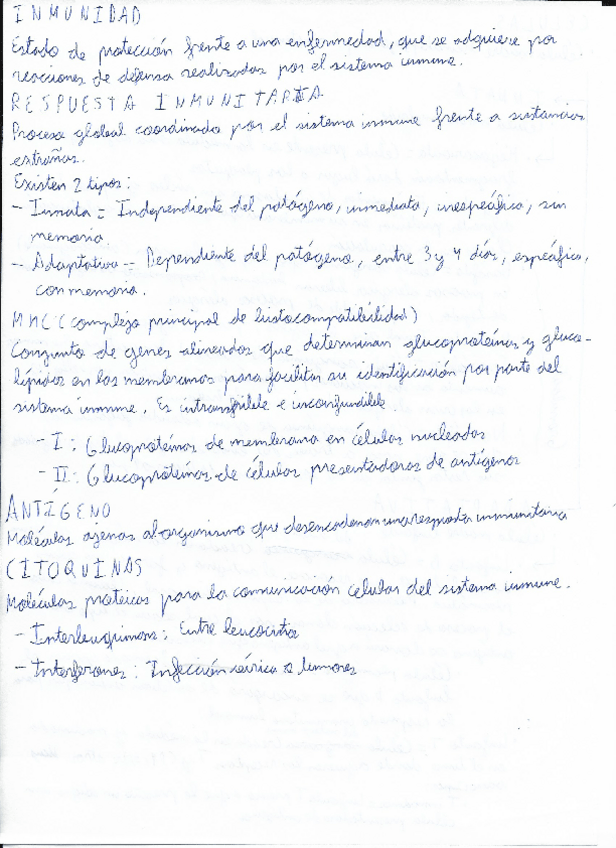 INMUNIDAD
Estado de protección frente a una enfermedad, que se adquiere por
reacciones de defensa realizadas por el sistema inmune.
RESPUESTA INMUNITARIA
Proceso global coordinado por el sistema inmune frente a sustancias
extrañas.
Existen 2 tipos:
- Innata = Independiente del patógeno, inmediata, inespecífica, sin
memoria.
- Adaptativa - Dependiente del patógeno, entre 3 y 4 días, específica,
con memoria.
MHC (Complejo principal de histocompatibilidad)
Conjunto de genes alineados que determinan glucoproteínas y gluco-
lípidos en las membranas para facilitar su identificación por parte del
sistema inmune. Es intransferible e inconfundible.
- I: Glucoproteínas de membrana en células nucleadas
- II: Glucoproteínas de células presentadoras de antígenos
ANTÍGENO
Moléculas ajenas al organismo que desencadenan una respuesta inmunitaria
CITOQUINAS
Moléculas proteicas para la comunicación celular del sistema inmune.
- Interleuquinas: Entre leucocitos
- Interferones: Infección vírica o tumores